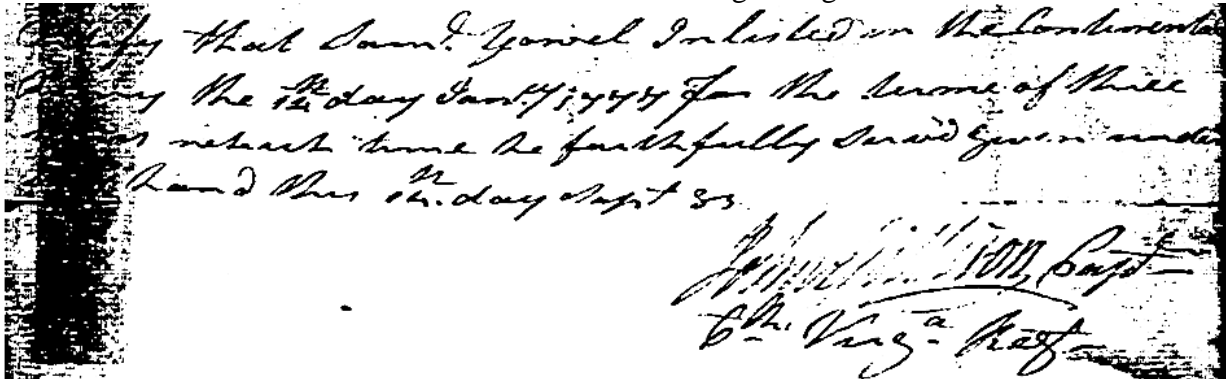 that Sam.l Yowel Inlisted in the Continental
the 14th day Jan.y 1777 for the terme of three
which time he faithfully serv'd given under
hand this 14th day Sept 83
Capt
6th Virg.a Regt